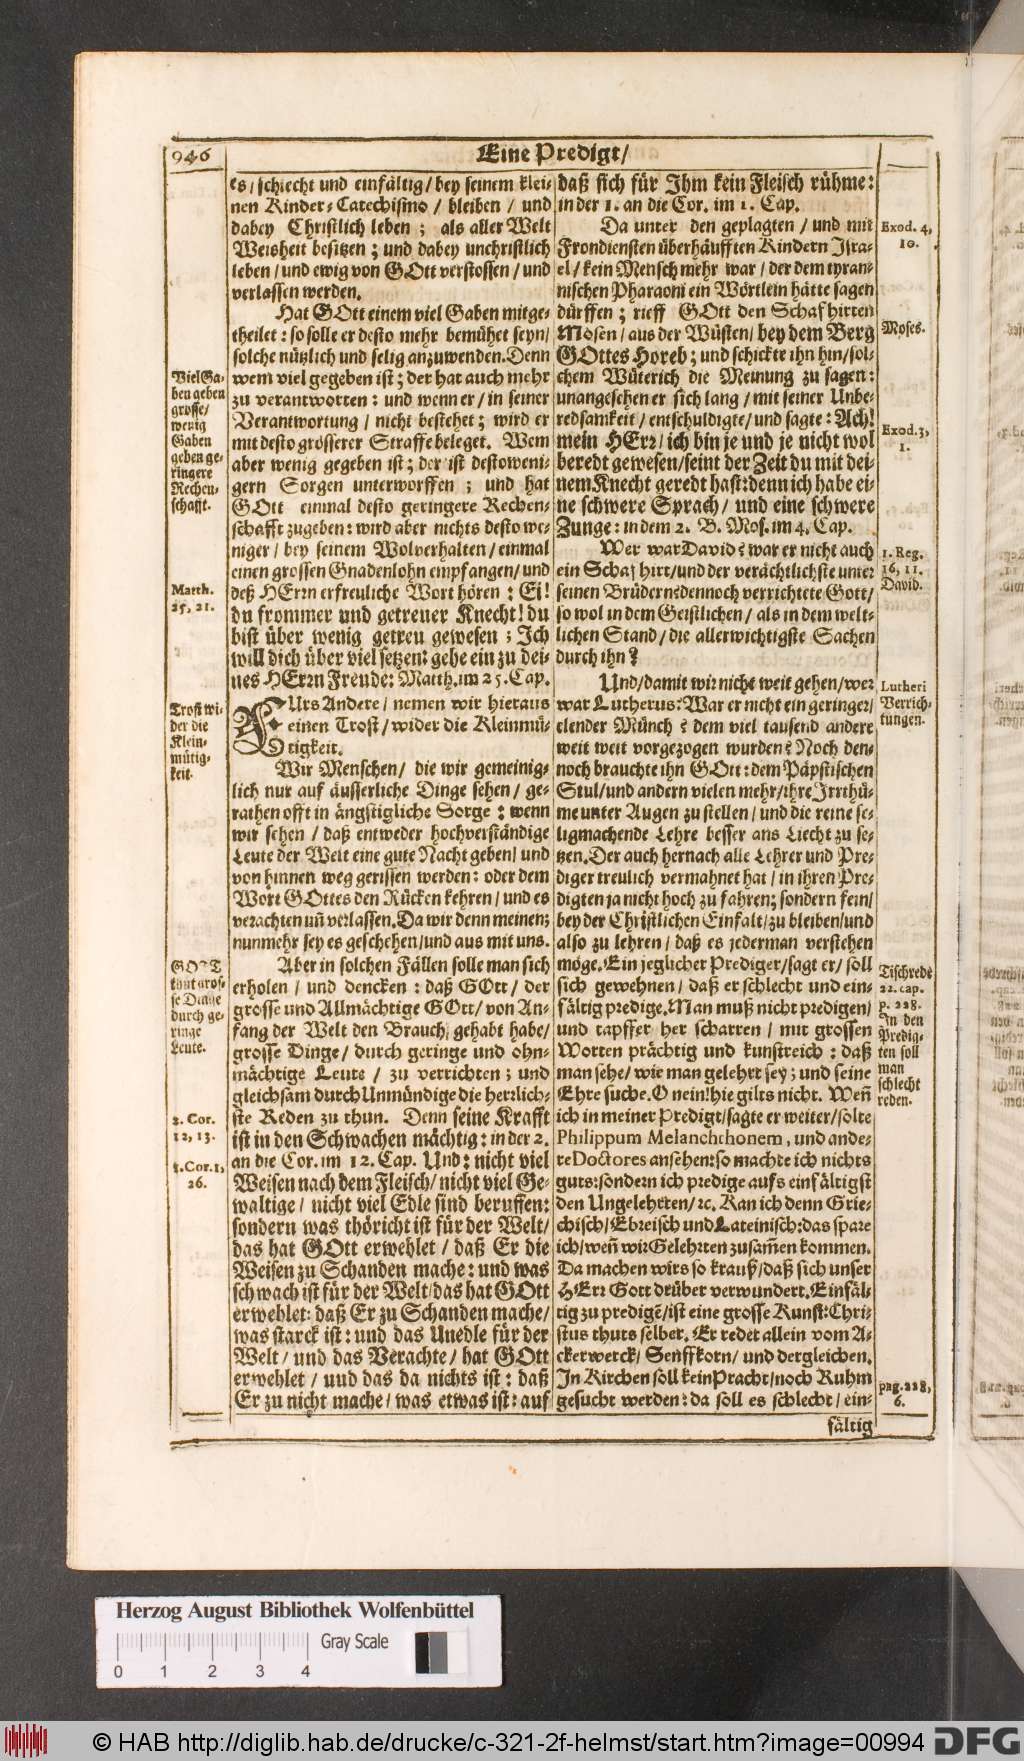 946
Eine Predigt/
es/schlecht und einfältig/bey seinem klei-
nen Kinder-Catechismo / bleiben / und
dabey Christlich leben ; als aller Welt
Weisheit besitzen ; und dabey unchristlich
leben/und ewig von GOtt verstossen/und
verlassen werden.
Hat GOtt einem viel Gaben mitge-
theilet: so solle er desto mehr bemühet seyn/
solche nützlich und selig anzuwenden. Denn
wem viel gegeben ist; der hat auch mehr
zu verantworten: und wenn er/in seiner
Verantwortung / nicht bestehet; wird er
mit desto grösserer Straffe beleget. Wem
aber wenig gegeben ist; der ist destoweni-
gern Sorgen unterworffen ; und hat
GOtt einmal desto geringere Rechen-
schafft zugeben: wird aber nichts desto we-
niger/bey seinem Wolverhalten/einmal
einen grossen Gnadenlohn empfangen/und
deß HErrn erfreuliche Wort hören : Ei!
du frommer und getreuer Knecht! du
bist über wenig getreu gewesen ; Ich
will dich über viel setzen: gehe ein zu dei-
nes HErrn Freude: Matth.im 25.Cap.
FUrs Andere/nemen wir hieraus
einen Trost/wider die Kleinmü-
tigkeit.
Wir Menschen/ die wir gemeinig-
lich nur auf äusserliche Dinge sehen/ ge-
rathen offt in ängstigliche Sorge : wenn
wir sehen / daß entweder hochverständige
Leute der Welt eine gute Nacht geben/und
von hinnen weg gerissen werden: oder dem
Wort GOttes den Rücken kehren/und es
verachten uñ verlassen. Da wir denn meinen;
nunmehr sey es geschehen/und aus mit uns.
Aber in solchen Fällen solle man sich
erholen / und dencken : daß GOtt / der
grosse und Allmächtige GOtt/von An-
fang der Welt den Brauch gehabt habe/
grosse Dinge/durch geringe und ohn-
mächtige Leute / zu verrichten ; und
gleichsam durch Unmündige die herrlich-
ste Reden zu thun. Denn seine Krafft
ist in den Schwachen mächtig: in der 2.
an die Cor.im 12.Cap. Und: nicht viel
Weisen nach dem Fleisch/nicht viel Ge-
waltige/ nicht viel Edle sind beruffen:
sondern was thöricht ist für der Welt/
das hat GOtt erwehlet / daß Er die
Weisen zu Schanden mache: und was
schwach ist für der Welt/das hat GOtt
erwehlet: daß Er zu Schanden mache/
was starck ist: und das Unedle für der
Welt/ und das Verachte/ hat GOtt
erwehlet / und das da nichts ist : daß
Er zu nicht mache/was etwas ist: auf
Viel Ga-
ben geben
grosse/
wenig
Gaben
geben ge-
ringere
Rechen-
schafft.
Matth.
25, 21.
Trost wi-
der die
Klein-
mütig-
keit.
GOTT
kant gros-
se Dinge
durch ge-
ringe
Leute.
2. Cor.
12, 13.
1. Cor. 1,
26.
daß sich für Ihm kein Fleisch rühme:
in der 1. an die Cor. im 1. Cap.
Da unter den geplagten / und mit
Frondiensten überhäufften Kindern Isra-
el/kein Mensch mehr war/der dem tyran-
nischen Pharaoni ein Wörtlein hätte sagen
dürffen ; rieff GOtt den Schafhirten
Mosen/aus der Wüsten/bey dem Berg
GOttes Horeb; und schickte ihn hin/sol-
chem Wüterich die Meinung zu sagen:
unangesehen er sich lang/mit seiner Unbe-
redsamkeit/entschuldigte/und sagte: Ach!
mein HErr/ich bin je und je nicht wol
beredt gewesen/seint der Zeit du mit dei-
nem Knecht geredt hast: denn ich habe ei-
ne schwere Sprach/ und eine schwere
Zunge: in dem 2. B. Mos.im 4. Cap.
Wer war David? war er nicht auch
ein Schaf hirt/und der verächtlichste unter
seinen Brüdern? dennoch verrichtete Gott/
so wol in dem Geistlichen/als in dem welt-
lichen Stand/die allerwichtigste Sachen
durch ihn?
Und/damit wir nicht weit gehen/wer
war Lutherus: War er nicht ein geringer/
elender Münch? dem viel tausend andere
weit weit vorgezogen wurden? Noch den-
noch brauchte ihn GOtt: dem Päpstischen
Stul/und andern vielen mehr/ihre Irrthü-
me unter Augen zu stellen/und die reine se-
ligmachende Lehre besser ans Liecht zu se-
tzen. Der auch hernach alle Lehrer und Pre-
diger treulich vermahnet hat/in ihren Pre-
digten ja nicht hoch zu fahren; sondern fein/
bey der Christlichen Einfalt/zu bleiben/und
also zu lehren/daß es jederman verstehen
möge. Ein jeglicher Prediger/sagt er/soll
sich gewehnen/daß er schlecht und ein-
fältig predige. Man muß nicht predigen/
und tapffer her scharren / mit grossen
Worten prächtig und kunstreich : daß
man sehe/wie man gelehrt sey; und seine
Ehre suche. O nein! hie gilts nicht. Weñ
ich in meiner Predigt/sagte er weiter/solte
Philippum Melanchthonem, und ande-
re Doctores ansehen: so machte ich nichts
guts: sondern ich predige aufs einfältigst
den Ungelehrten/ꝛc. Kan ich denn Grie-
chisch/Ebreisch und Lateinisch: das spare
ich/weñ wir Gelehrten zusam̃en kommen.
Da machen wirs so krauß/daß sich unser
HErr Gott drüber verwundert. Einfäl-
tig zu predigẽ/ist eine grosse Kunst: Chri-
stus thuts selber. Er redet allein vom A-
ckerwerck/ Senffkorn/ und dergleichen.
In Kirchen soll kein Pracht/noch Ruhm
gesucht werden: da soll es schlecht/ein-
fältig
Exod. 4,
10.
Moses.
Exod. 3,
1.
1. Reg.
16, 11.
David.
Lutheri
Verrich-
tungen.
Tischrede
22. cap.
p. 228.
In den
Predig-
ten soll
man
schlecht
reden.
pag. 228,
6.
Herzog August Bibliothek Wolfenbüttel
Gray Scale
0 1 2 3 4
© HAB http://diglib.hab.de/drucke/c-321-2f-helmst/start.htm?image=00994
DFG